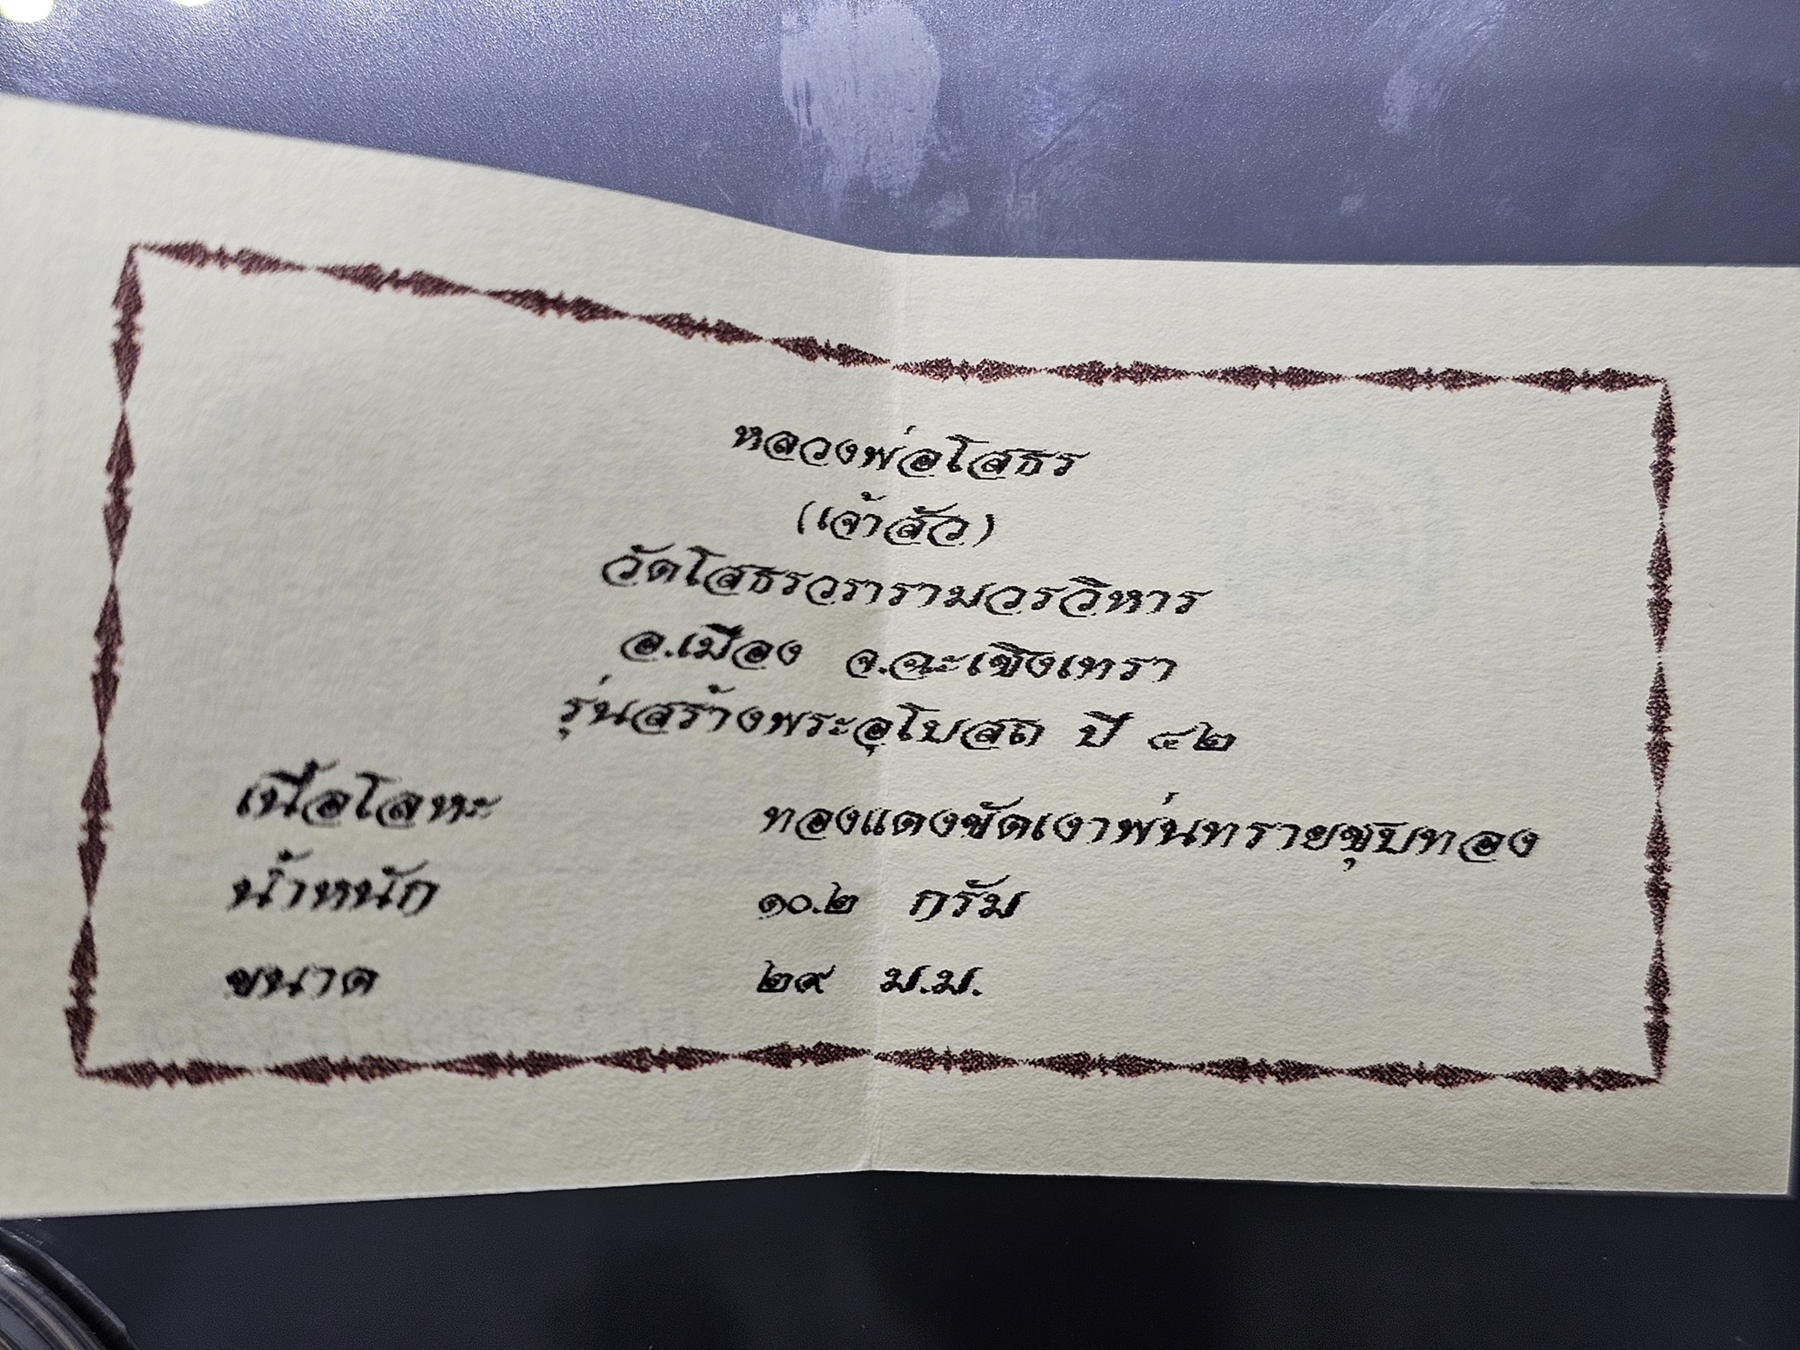 หลวงพ่อโสธร
(เจ้าสัว)
วัดโสธรวรารามวรวิหาร
อ.เมือง จ.ฉะเชิงเทรา
รุ่นสร้างพระอุโบสถ ปี ๔๒
เนื้อโลหะ ทองแดงขัดเงาพ่นทรายชุบทอง
น้ำหนัก ๑๐.๒ กรัม
ขนาด ๒๙ ม.ม.